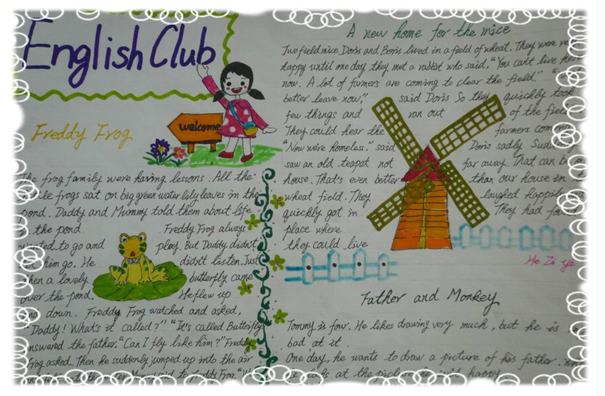 English Club
welcome
Freddy Frog
The frog family were having lessons. All the
frogs sat on big green water lily leaves in the
pond. Daddy and Mummy told them about life
the pond. Freddy Frog always
wanted to go and play. But Daddy didn't
him go. He didn't listen. Just
then a lovely butterfly came
over the pond. He flew up
down. Freddy Frog watched and asked,
Daddy! What's it called?" "It's called Butterfly
answered the father. "Can I fly like him?" Freddy
Frog asked. Then he suddenly jumped up into the air
A new home for the mice
Two field mice, Doris and Boris lived in a field of wheat. They were very
happy until one day they met a rabbit who said, "You can't live here
now. A lot of farmers are coming to clear the field."
better leave now," said Doris So they quickly took
few things and ran out of the field
They could hear the farmers
"Now we're homeless." said Doris sadly.
saw an old teapot not far away. That can be
house. That's even better than our house
wheat field. They laughed happily
quickly got in They had
place where
they could live
Father and Monkey
Tommy is four. He likes drawing very much, but he is
bad at it.
One day, he wants to draw a picture of his father.
looks at the picture